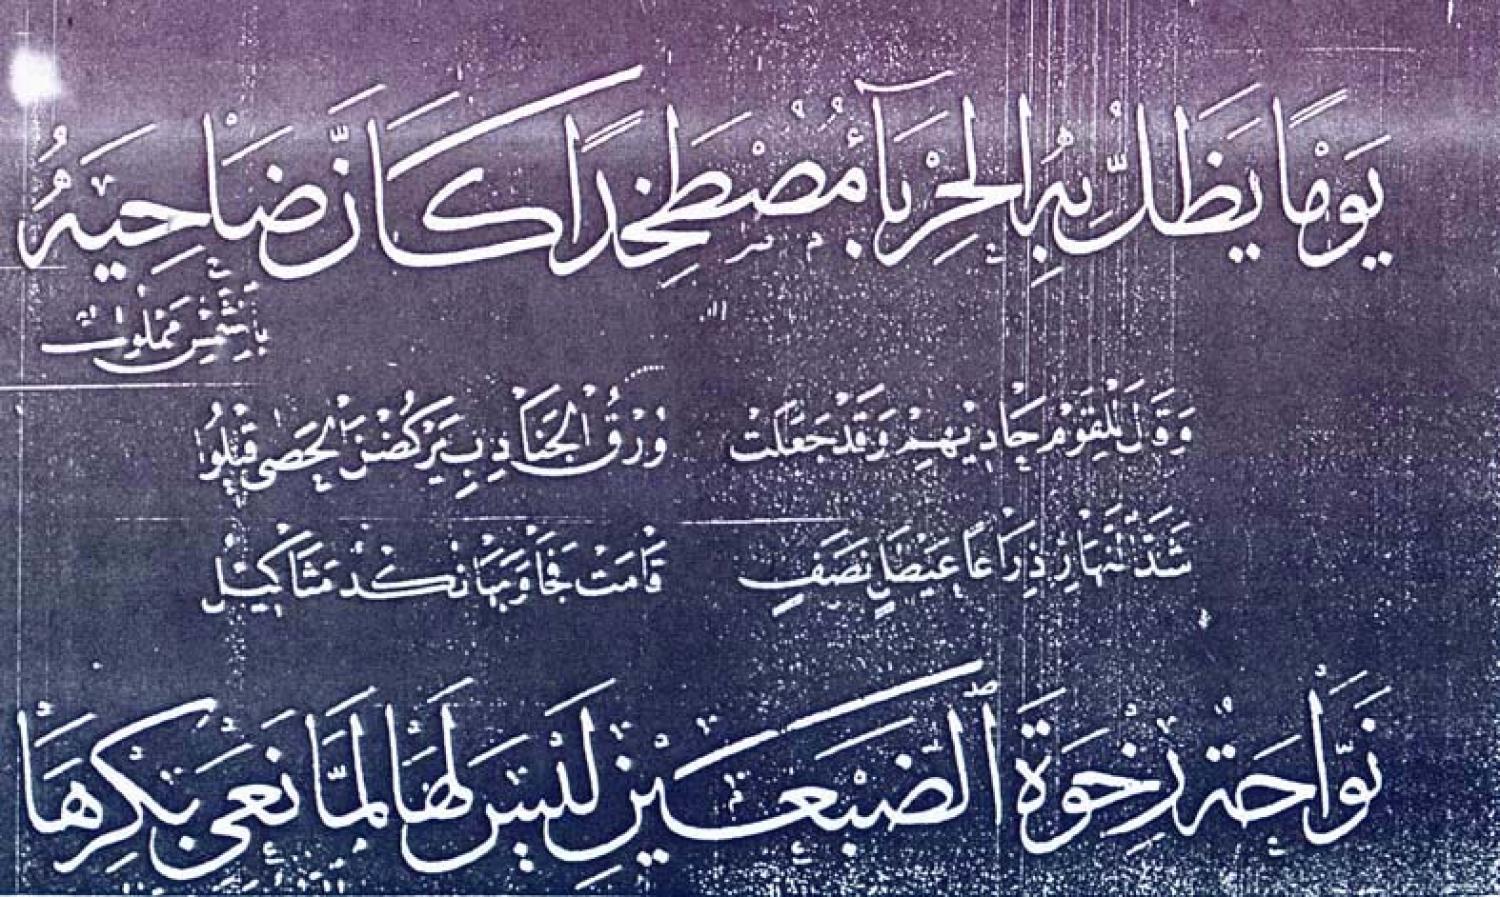 يَوْمًا يَظَلُّ بِهِ الْحِرْبَآءُ مُصْطَخِدًا كَانَّ ضَاحِيَهُ
بِالشَّمْسِ مَمْلُولُ
وَقَالَ لِلْقَوْمِ حَادِيْهِمْ وَقَدْ جَعَلَتْ وُرْقُ الْجَنَادِبِ يَرْكُضْنَ الْحَصٰى قِيْلُوْا
شَدَّ النَّهَارِ ذِرَاعًا عَيْطَلٍ نَصَفٍ قَامَتْ فَجَاوَبَهَا نُكْدٌ مَثَاكِيْلُ
نَوَّاحَةٌ رِخْوَةُ الضَّبْعَيْنِ لَيْسَ لَهَا لَمَّا نَعٰى بِكْرَهَا